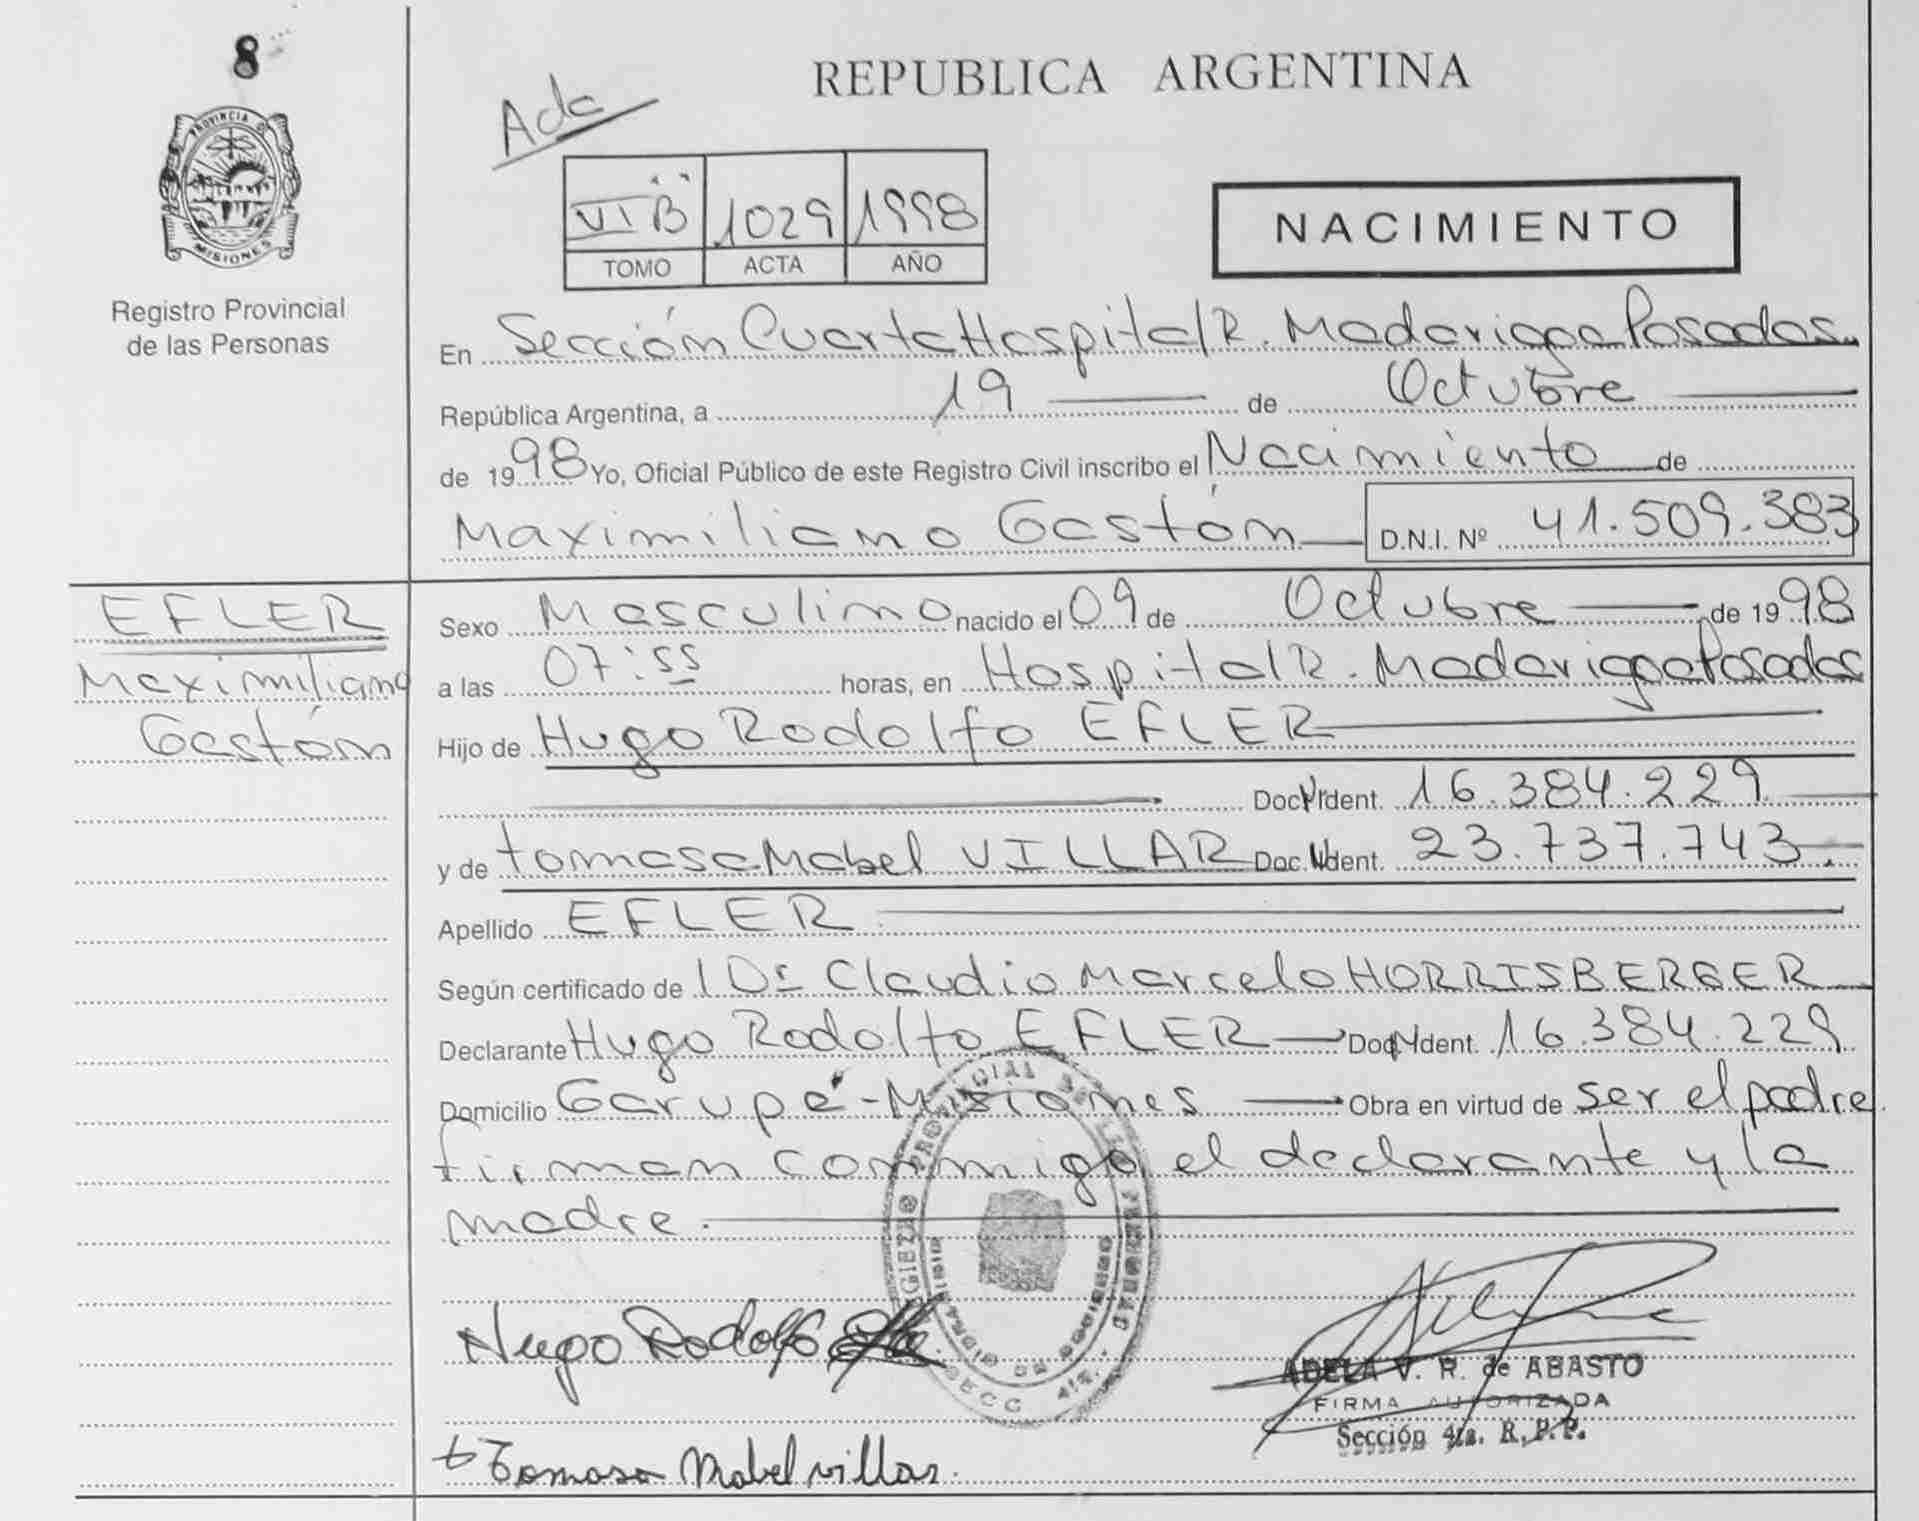 8
PROVINCIA D
MISIONES
Registro Provincial
de las Personas
REPUBLICA ARGENTINA
Ada
VI B 1029 1998
TOMO ACTA AÑO
NACIMIENTO
En Sección Cuarta Hospital R. Madariaga Posadas.
República Argentina, a 19 de Octubre
de 1998 Yo, Oficial Público de este Registro Civil inscribo el Nacimiento de
Maximiliano Gastón D.N.I. Nº 41.509.383
EFLER
Maximiliano
Gastón
Sexo Masculino nacido el 09 de Octubre de 1998
a las 07:55 horas, en Hospital R. Madariaga Posadas
Hijo de Hugo Rodolfo EFLER
Doc. Ident. 16.384.229
y de Tomasa Mabel VILLAR Doc. Ident. 23.737.743.
Apellido EFLER
Según certificado de Claudio Marcelo HORRISBERGER
Declarante Hugo Rodolfo EFLER Doc. Ident. 16.384.229
Domicilio Garupá - Misiones Obra en virtud de ser el padre
firman conmigo el declarante y la
madre.
Hugo Rodolfo
ADELA V. R. de ABASTO
FIRMA AUTORIZADA
Sección 4ta. R.P.P.
Tomasa Mabel villar.